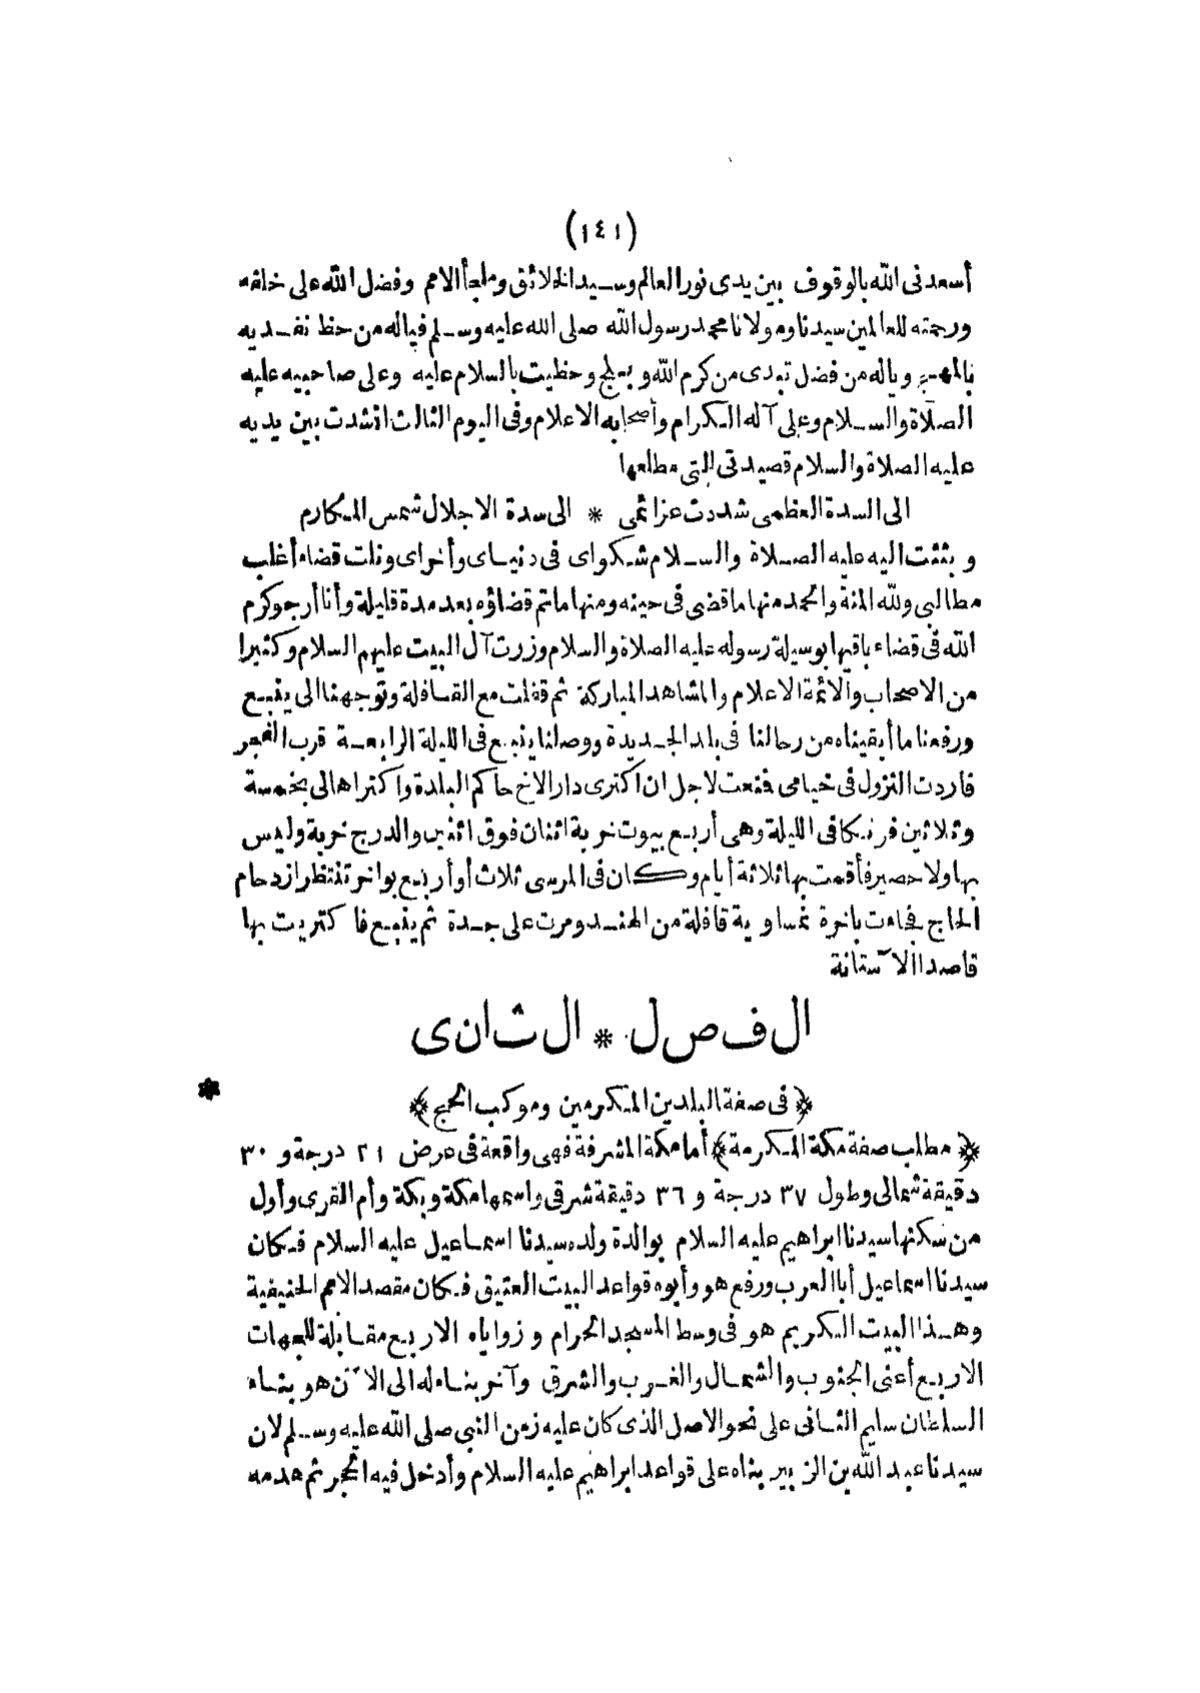 (١٤١)
أسعدنى الله بالوقوف بين يدى نور العالم وسيد الخلائق وملجأ الامم وفضل الله على خلقه
ورحمته للعالمين سيدنا ومولانا محمد رسول الله صلى الله عليه وسلم فياله من حظ نفديه
بالمهج وياله من فضل تبدى من كرم الله وبلج وحظيت بالسلام عليه وعلى صاحبيه عليه
الصلاة والسلام وعلى آله الكرام وأصحابه الاعلام وفى اليوم الثالث انشدت بين يديه
عليه الصلاة والسلام قصيدتى التى مطلعها
الى السدة العظمى شددت عزائمى * الى سدة الاجلال شمس المكارم
وبثثت اليه عليه الصلاة والسلام شكواى فى دنياى وأخراى ونلت قضاء أغلب
مطالبى ولله المنة والحمد منها ماقضى فى حينه ومنها ماتم قضاؤه بعد مدة قليلة وأنا أرجو كرم
الله فى قضاء باقيها بوسيلة رسوله عليه الصلاة والسلام وزرت آل البيت عليهم السلام وكثيرا
من الاصحاب والائمة الاعلام والمشاهد المباركة ثم قفلت مع القافلة وتوجهنا الى ينبع
ورفعنا ما أبقيناه من رحالنا فى بلد الجديدة ووصلنا ينبع فى الليلة الرابعة قرب الفجر
فاردت النزول فى خيامى فمنعت لاجل ان اكترى دار الاخ حاكم البلدة واكتراها لى بخمسة
وثلاثين فرنكا فى الليلة وهى أربع بيوت خربة اثنان فوق اثنين والدرج خربة وليس
بها ولا حصير فأقمت بها ثلاثة أيام وكان فى المرسى ثلاث أو أربع بواخر تنتظر ازدحام
الحاج فجاءت باخرة نمساوية قافلة من الهند ومرت على جدة ثم ينبع فاكتريت بها
قاصدا الآستانة
الفصل * الثانى
﴿فى صفة البلدين المكرمين وموكب الحج﴾
*
﴿مطلب صفة مكة المكرمة﴾ أما مكة المشرفة فهى واقعة فى عرض ٢١ درجة و ٣٠
دقيقة شمالى وطول ٣٧ درجة و ٣٦ دقيقة شرقى واسمها مكة وبكة وأم القرى وأول
من سكنها سيدنا ابراهيم عليه السلام بوالدة ولده سيدنا اسماعيل عليه السلام فكان
سيدنا اسماعيل أبا العرب ورفع هو وأبوه قواعد البيت العتيق فكان مقصد الامم الحنيفية
وهذا البيت الكريم هو فى وسط المسجد الحرام وزواياه الاربع مقابلة للجهات
الاربع أعنى الجنوب والشمال والغرب والشرق وآخر بناء له الى الآن هو بناء
السلطان سليم الثانى على نحو الاصل الذى كان عليه زمن النبى صلى الله عليه وسلم لان
سيدنا عبد الله بن الزبير بناه على قواعد ابراهيم عليه السلام وأدخل فيه الحجر ثم هدمه